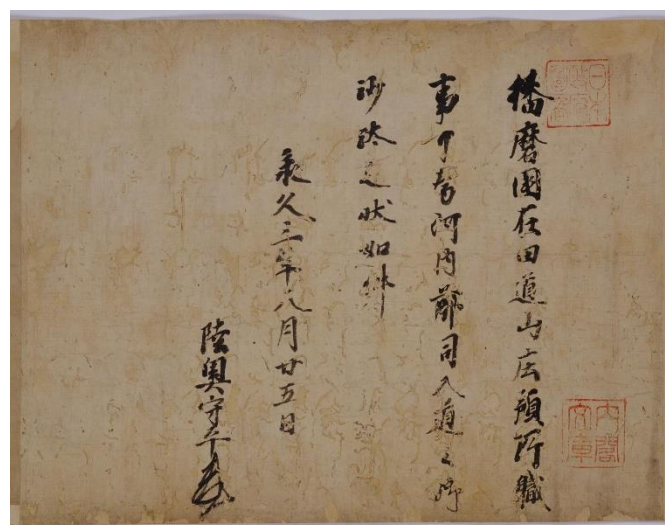 播磨國在田道山庄預所職
事可為河内前司入道之御
沙汰之状如件
承久三年八月廿五日
陸奥守平
日本政府圖書
内閣文庫